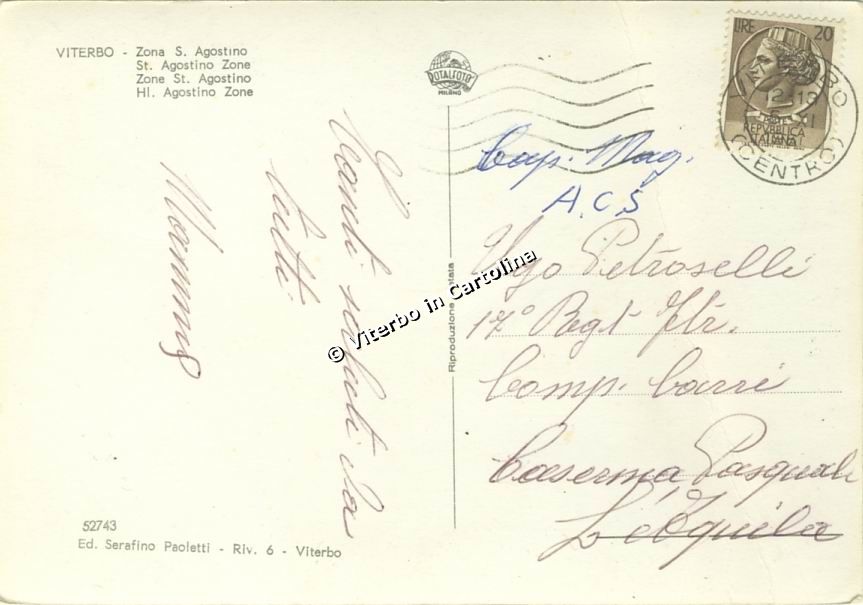 VITERBO - Zona S. Agostino
St. Agostino Zone
Zone St. Agostino
Hl. Agostino Zone
ROTALFOTO
MILANO
LIRE 20
REPVBBLICA
ITALIANA
12 10
(CENTRO)
Cap. Mag.
A.C.S
Ugo Petroselli
17° Regt Ftr.
Comp. Carri
Caserma Pasquali
L'Aquila
Tanti saluti da
tutti
Riproduzione vietata
© Viterbo in Cartolina
52743
Ed. Serafino Paoletti - Riv. 6 - Viterbo